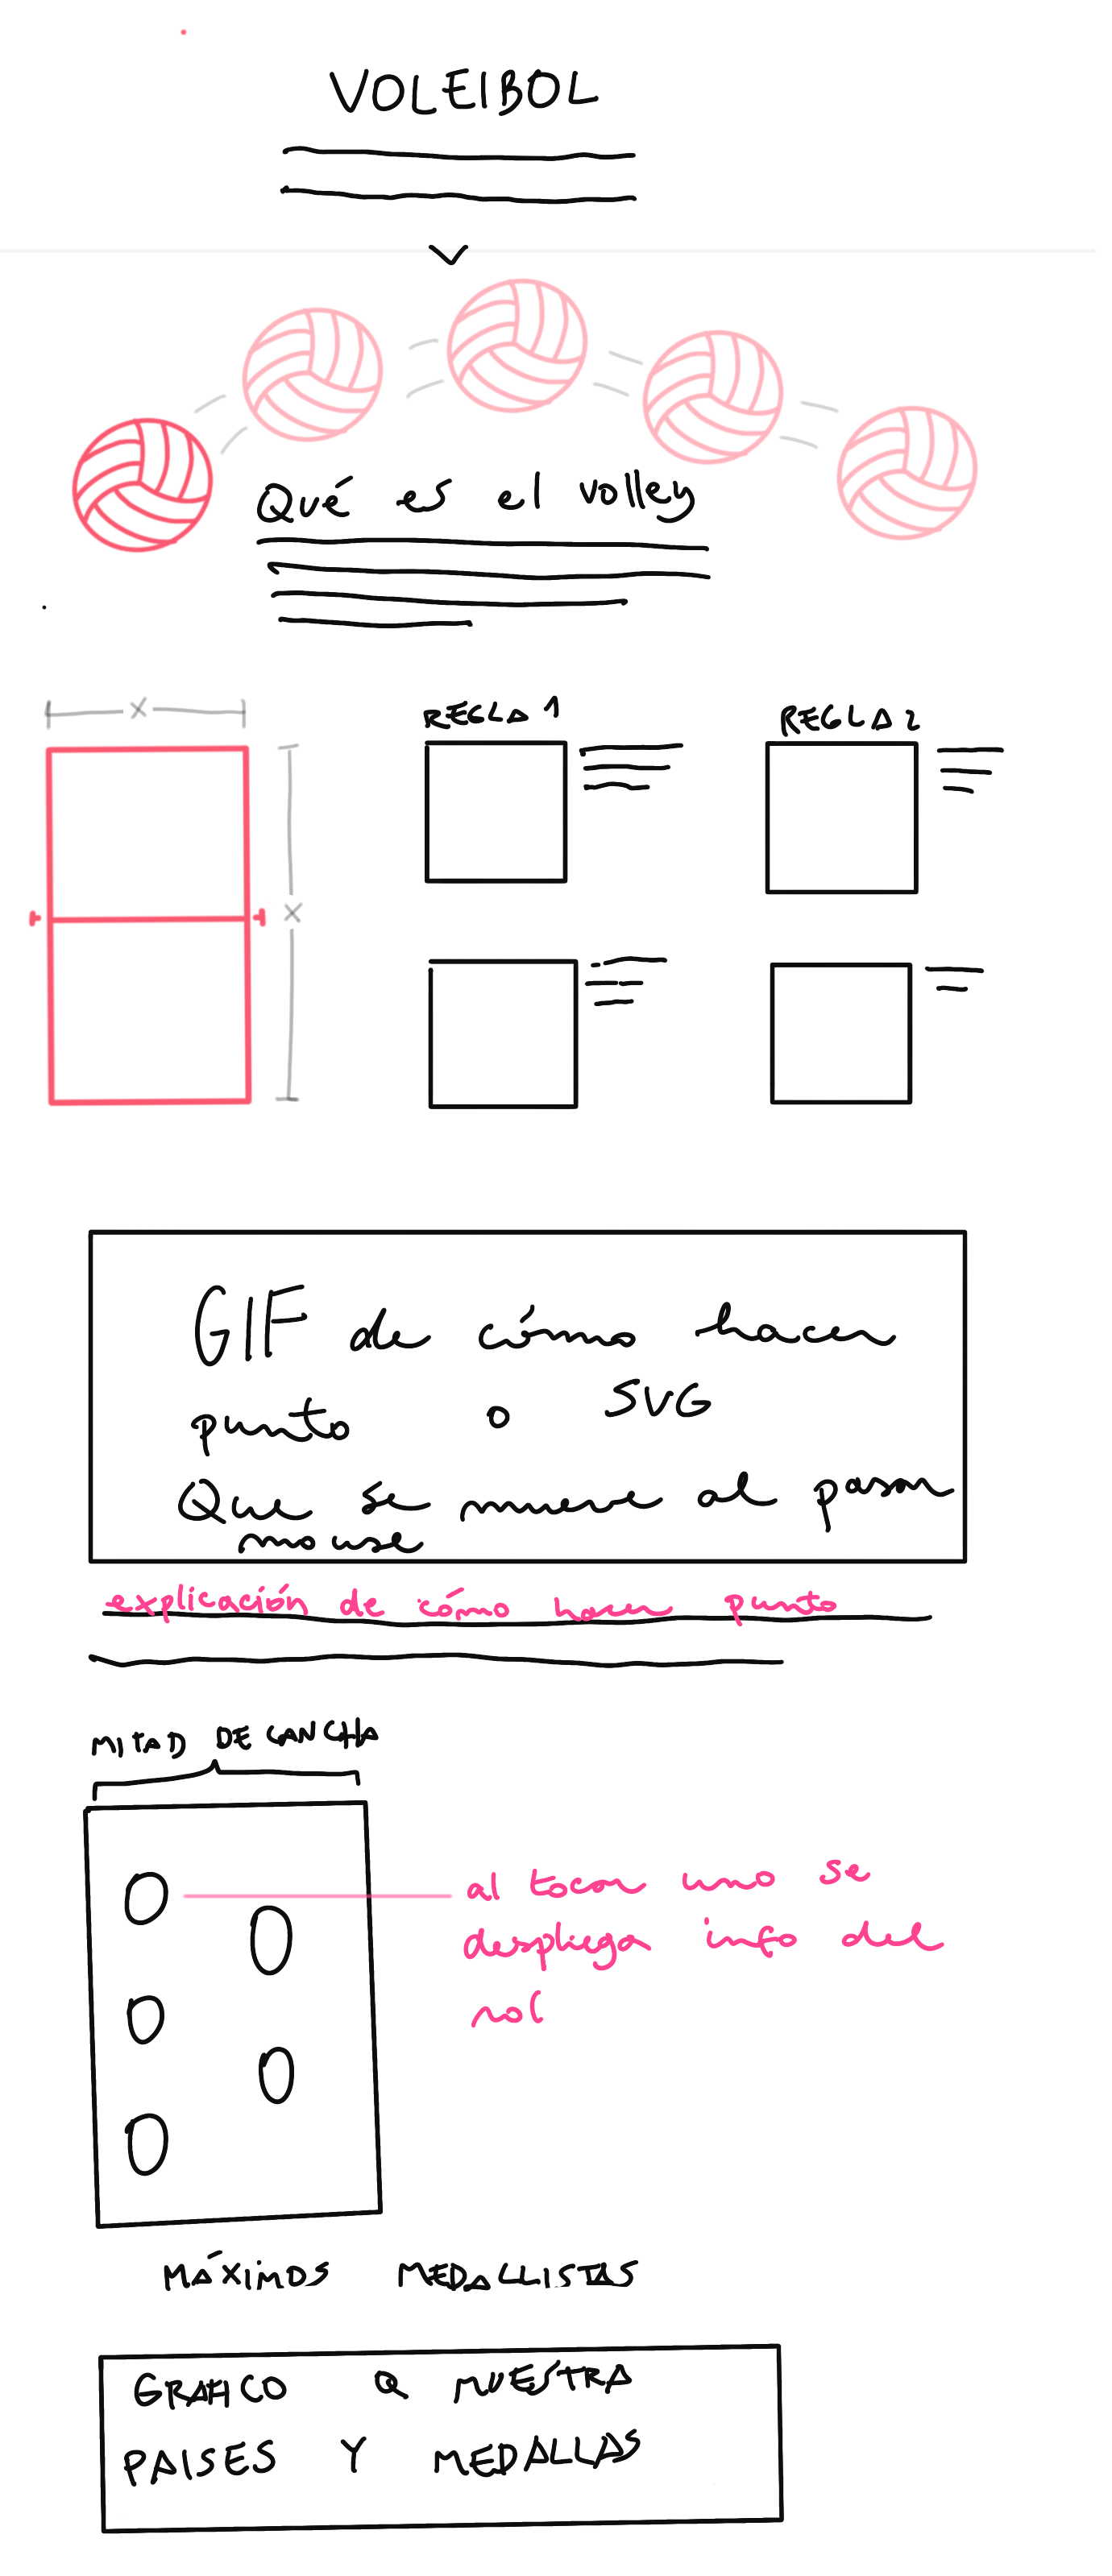 VOLEIBOL
Qué es el volley
X
REGLA 1
REGLA 2
X
GIF de cómo hacer
punto o SVG
Que se mueve al pasar
mouse
explicación de cómo hacer punto
MITAD DE CANCHA
al tocar uno se
despliega info del
rol
MÁXIMOS MEDALLISTAS
GRAFICO Q MUESTRA
PAISES Y MEDALLAS